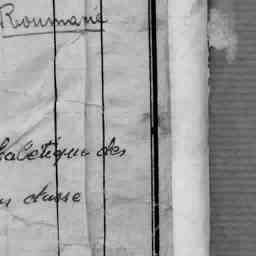 Roumanie
habétique des
classe